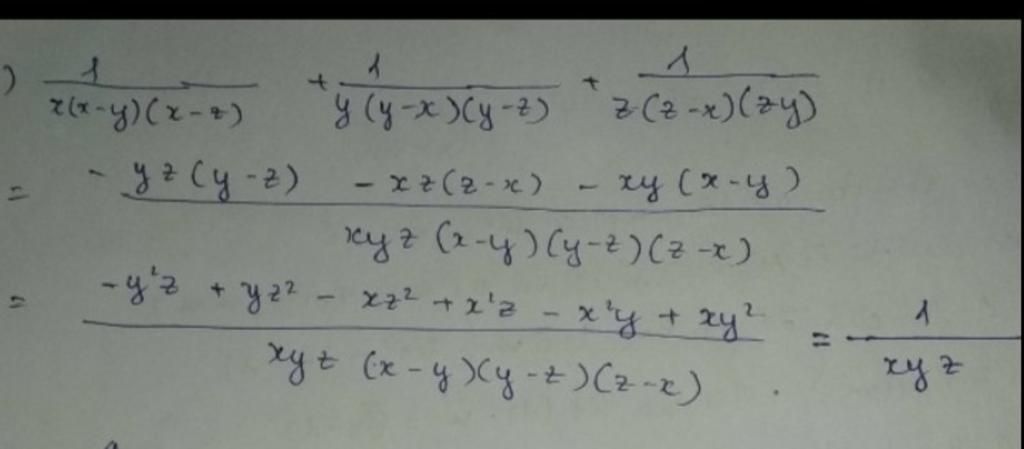 ) 1/x(x-y)(x-z) + 1/y(y-x)(y-z) + 1/z(z-x)(zy)
= - yz(y-z) - xz(z-x) - xy(x-y) / xyz(x-y)(y-z)(z-x)
= -y²z + yz² - xz² + x²z - x²y + xy² / xyz(x-y)(y-z)(z-x) = 1/xyz